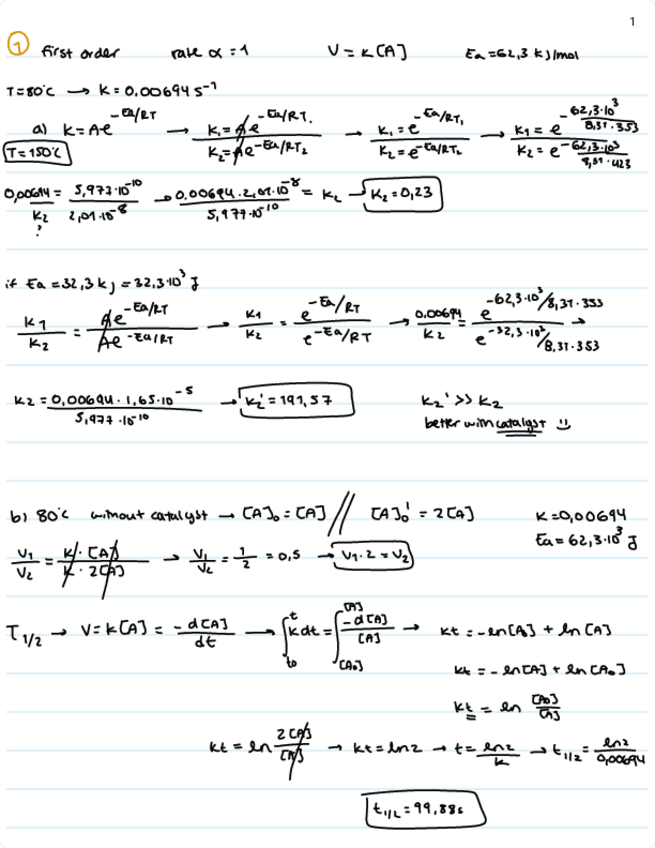 1
① first order rate α = 1 V = k[A] Ea = 62,3 kJ/mol
T = 80°C → K = 0,00694 s⁻¹
a) K = Ae^(-Ea/RT) → K₁ = Ae^(-Ea/RT₁) / K₂ = Ae^(-Ea/RT₂) → K₁ = e^(-Ea/RT₁) / K₂ = e^(-Ea/RT₂) → K₁ = e^(-62,3·10³ / 8,31·353) / K₂ = e^(-62,3·10³ / 8,31·423)
T = 150°C
0,00694 / K₂ = 5,977·10⁻¹⁰ / 2,01·10⁻⁸ → 0,00694·2,01·10⁻⁸ / 5,977·10⁻¹⁰ = K₂ → K₂ = 0,23
?
if Ea = 32,3 kJ = 32,3·10³ J
K₁ / K₂ = Ae^(-Ea/RT) / Ae^(-Ea/RT) → K₁ / K₂ = e^(-Ea/RT) / e^(-Ea/RT) → 0,00694 / K₂ = e^(-62,3·10³/8,31·353) / e^(-32,3·10³/8,31·353) →
K₂ = 0,00694 · 1,65·10⁻⁵ / 5,977·10⁻¹⁰ → K₂' = 191,57 K₂' >> K₂
better with catalyst :)
b) 80°C without catalyst → [A]₀ = [A] // [A]₀' = 2[A] K = 0,00694
Ea = 62,3·10³ J
V₁ / V₂ = K·[A] / K·2[A] → V₁ / V₂ = 1/2 = 0,5 → V₁·2 = V₂
T 1/2 → V = K[A] = -d[A] / dt → ∫ₜ₀ᵗ k dt = ∫[A₀]^[A] -d[A] / [A] → kt = -ln[A] + ln[A]
kt = -ln[A] + ln[A₀]
kt = ln [A₀]/[A]
kt = ln 2[A]/[A] → kt = ln2 → t = ln2/k → t1/2 = ln2 / 0,00694
t1/2 = 99,88s